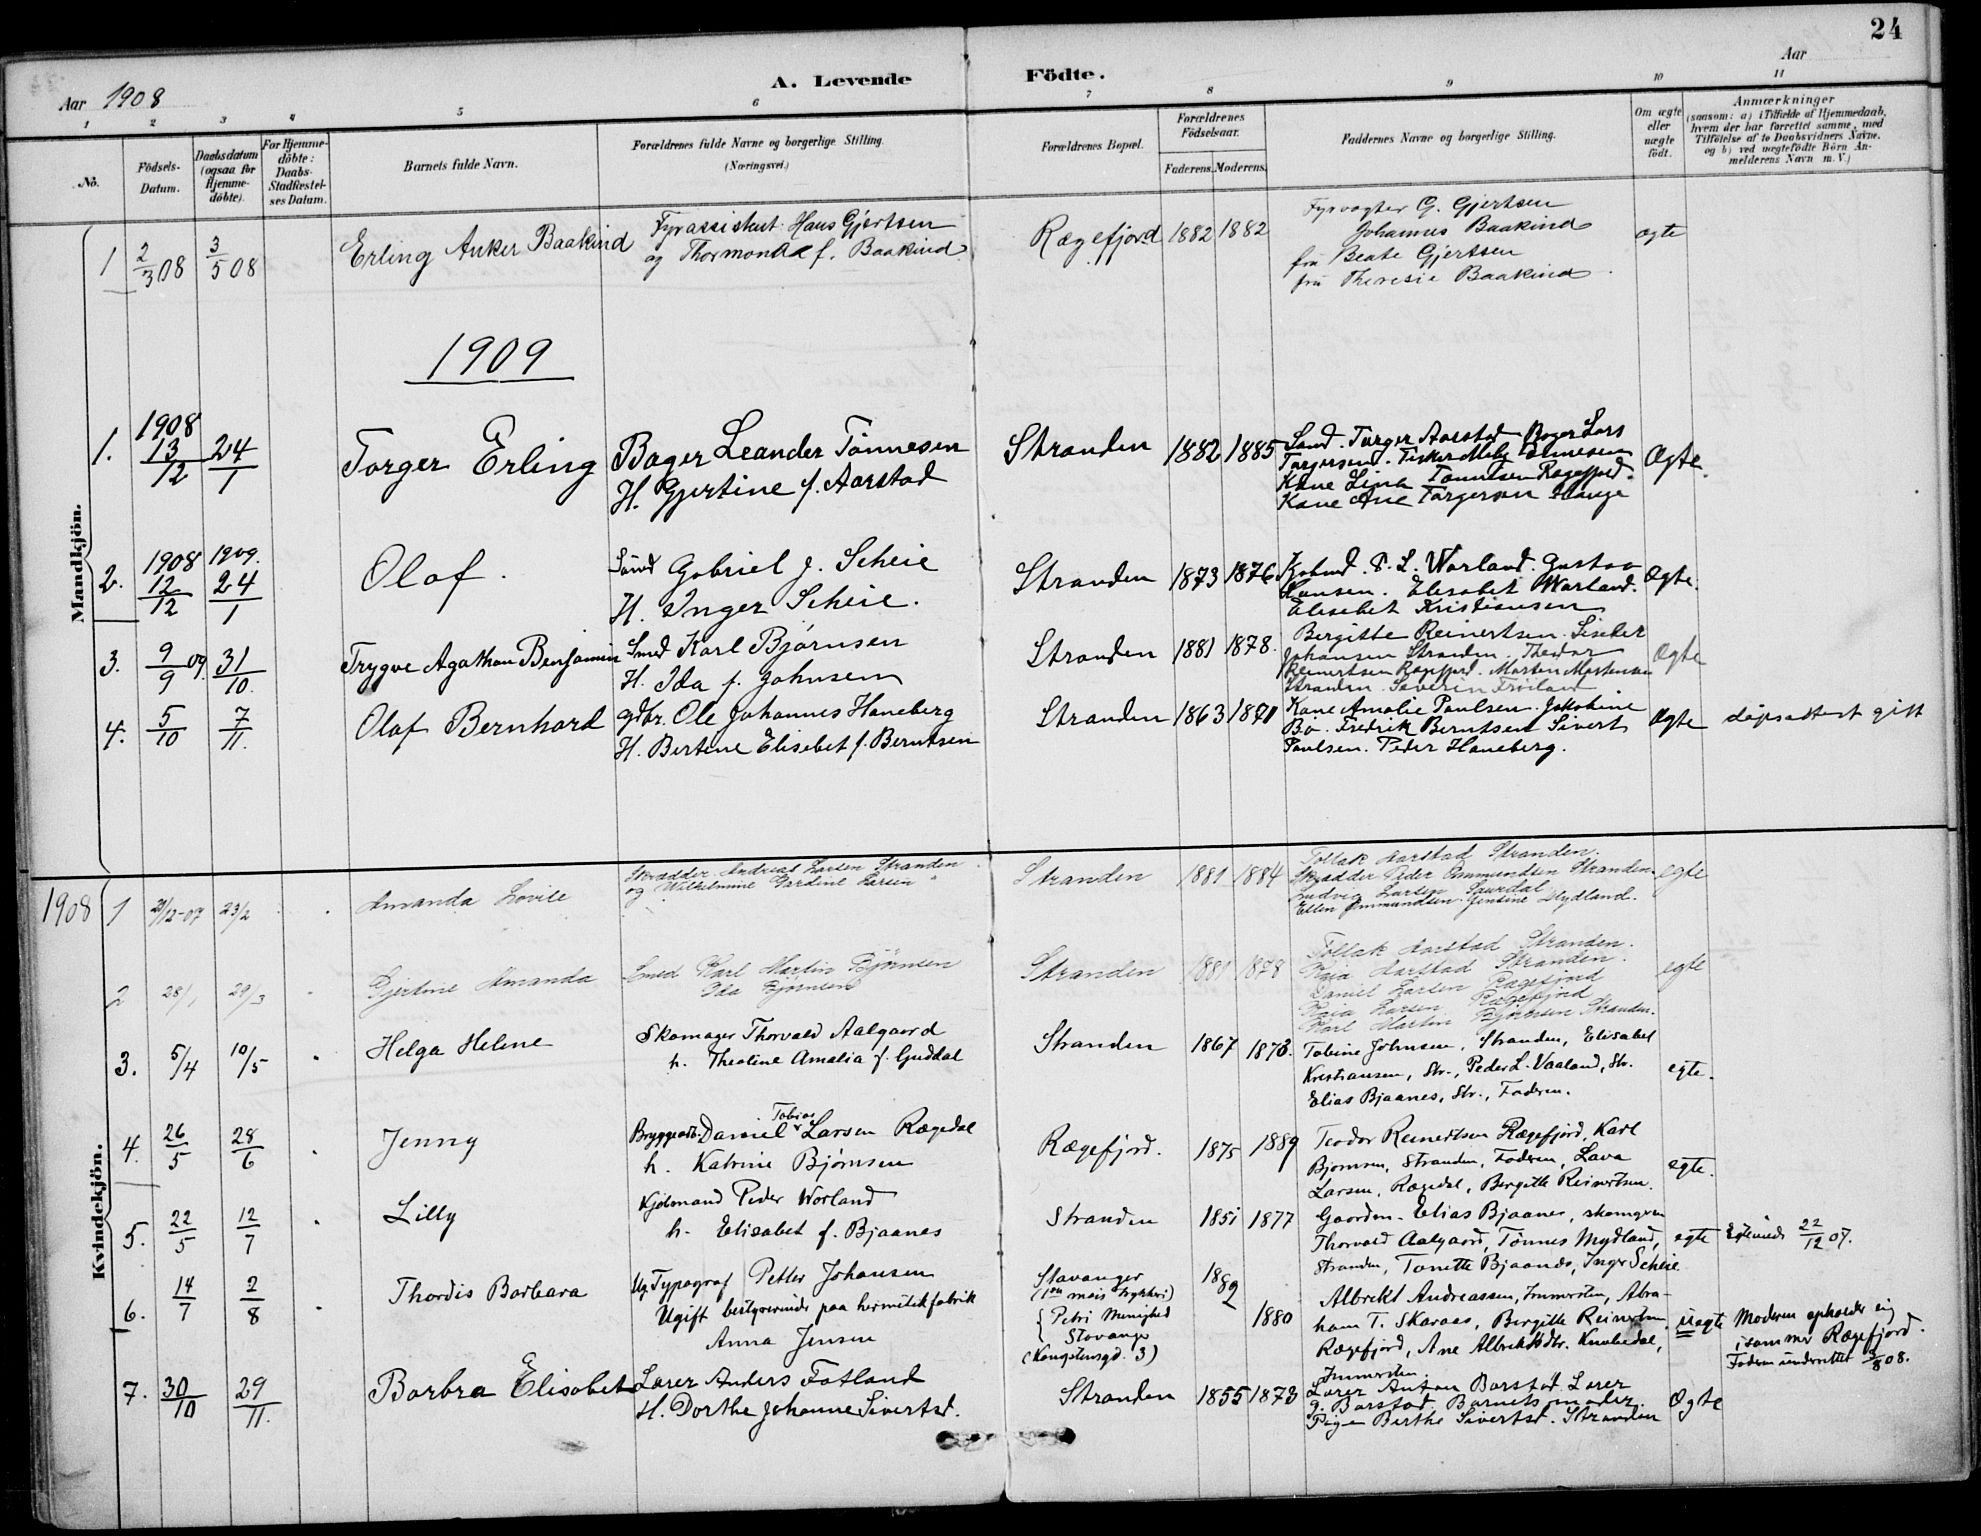 24
Aar 1908
A. Levende Födte.
Aar
1 2 3 4 5 6 7 8 9 10 11
No.
Födsels-Datum.
Daabsdatum (ogsaa for Hjemme-döbte).
For Hjemme-döbte: Daabs-Stadfæstel-ses Datum.
Barnets fulde Navn.
Forældrenes fulde Navne og borgerlige Stilling. (Næringsvei.)
Forældrenes Bopæl.
Forældrenes Födselsaar.
Faderens. Moderens.
Faddernes Navne og borgerlige Stilling.
Om ægte eller uægte födt.
Anmærkninger
(saasom: a) i Tilfælde af Hjemmedaab,
hvem der har forrettet samme, med
Tilföielse af to Daabsvidners Navne,
og b) ved uægtefödte Börn An-
melderens Navn m. V.)
Mandkjön.
1 2/3 08 3/5 08 Erling Anker Baakind
Fyrassistent Hans Gjertsen
og Thormonda f. Baakind
Rægefjord 1882 1882
Fyrvogter G. Gjertsen
Johannes Baakind
fru Beate Gjertsen
fru Theresie Baakind
ægte
1909
1. 1908 13/12 24/1 Torger Erling
Bager Leander Tönnesen
H. Gjertine f. Aarstad
Stranden 1882 1885
Torger Aarstad Bager Lars
Torgersen.
Kone Lina Rægefjord.
Kone Ane Torgersen Hauge
Ægte.
2. 1908 12/12 1909. 24/1 Olaf.
Gabriel J. Scheie
H. Inger Scheie.
Stranden 1873 1876
P. L. Worland. Gustav
Hansen. Elisabet Worland.
Elisebet Kristiansen
Ægte.
3. 9/9 09. 31/10. Trygve Agathon Benjamin
Smed Karl Bjørnsen
H. Ida f. Johnsen
Stranden 1881 1878.
Bergitte Reinertsen.
Johansen Stranden. Theodor
Reinertsen Rægefjord. Morten Mortensen
Stranden. Severin Fröiland
Ægte
4. 5/10 7/11. Olaf Bernhard
gdbr. Ole Johannes Haneberg
H. Bertine Elisebet f. Berntsen
Stranden 1863 1871
Kone Amalie Paulsen. Jakobine
Bö. Fredrik Berntsen Sivert
Paulsen. Peder Haneberg.
Ægte dåpsattest gitt
Kvindekjön.
1908 1 21/12-07 23/2 Amanda Lovise
Skrædder Andreas Larsen Stranden
og Wilhelmine Gardine Larsen "
Stranden 1881 1884
Tollak Aarstad Stranden.
Skrædder Peder Ommundsen Stranden.
Ludvig Larsen Saurdal
Ellen Ommundsen. Jensine Mydland.
egte
2 28/1 29/3 Gjertine Amanda
Smed Karl Martin Björnsen
Ida Bjørnsen
Stranden 1881 1878
Tollak Aarstad Stranden.
Kaia Aarstad Stranden.
Daniel Larsen Rægefjord
Kaia Larsen Rægefjord
Karl Martin Björnsen Stranden.
egte
3. 5/4 10/5 Helga Helene
Skomager Thorvald Aalgaard
h. Theoline Amalia f. Guddal
Stranden 1867 1873.
Tobine Johnsen, Stranden, Elisabet
Kristiansen, Str., Peder L. Vaaland, Str.
Elias Bjaanes, Str., Faderen.
egte.
4. 26/5 28/6 Jenny
Bryggearb. Daniel Tobias Larsen Rægedal
h. Katrine Bjørnsen
Rægefjord. 1875 1889
Teodor Reinertsen Rægefjord, Karl
Bjornsen, Stranden, Faderen, Lava
Larsen, Rægedal, Bergitte Reinertsen.
egte.
5. 22/5 12/7 Lilly
Kjöbmand Peder Worland
h. Elisabet f. Bjaanes
Stranden 1851 1877
Gaardm. Elias Bjaanes, skomager
Thorvald Aalgaard, Tönnes Mydland,
Stranden, Tonette Bjaanes, Inger Scheie.
egte 22/12 07.
6. 14/7 2/8 Thordis Barbara
Ug. Typograf Petter Johansen
Ugift bestyrerinde paa hermetikfabrik
Anna Jensen
Stavanger
Petri Menighed
Stavanger
(Kongstensgd. 3)
1882 1880
Albrekt Andreassen, Immersten, Abra-
ham T. Skaraas, Bergitte Reinertsen
Rægefjord, Ane Albrektsdtr. Knubedal,
Immersten.
uægte
Moderen opholder sig
i sommer Rægefjord.
Faderen underrettet 3/8 08.
7. 30/10 29/11. Barbra Elisabet
Lærer Anders Fotland
H. Dorthe Johanne Sivertsd.
Stranden 1855 1873
Lærer Anton Barstad Lærer
J. Barstad. Barnets moder.
Pige Birthe Sivertsd. Stranden
Ægte